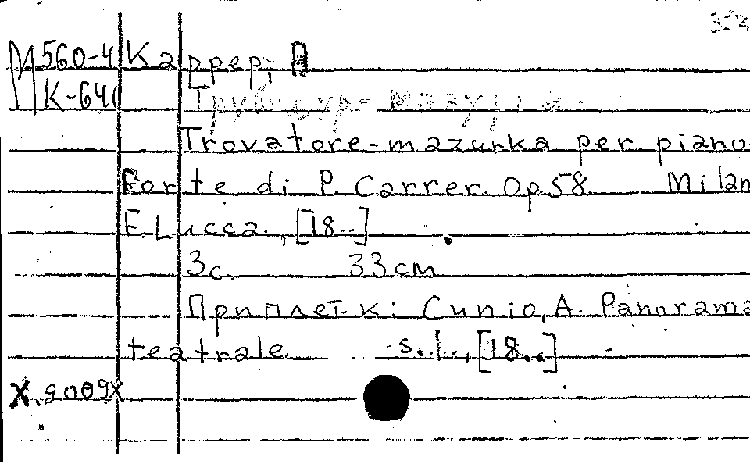 М 560-4 Каррер, П
К-640
Трубадур-мазурка
Trovatore-mazurka per piano
Forte di P. Carrer. Op 58 Milan
F. Lucca., [18..]
3с. 33 см
Приплетк: Cunio, A. Panorama
teatrale s.l., [18..]
X.9009X